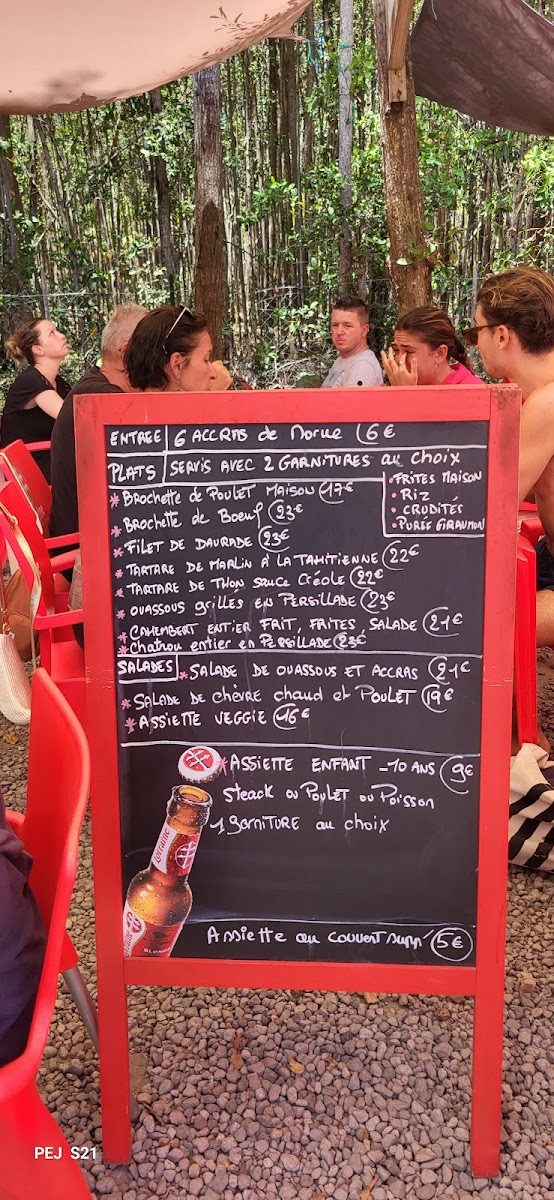 ENTREE 6 ACCRAS de Morue 6€
PLATS SERVIS AVEC 2 GARNITURES au choix
• FRITES MAISON
• Riz
• CRUDITÉS
• PURÉE GIRAUMON
* Brochette de Poulet Maison 17€
* Brochette de Boeuf 23€
* FILET DE DAURADE 23€
* TARTARE DE MARLIN A LA TAHITIENNE 22€
* TARTARE DE THON sauce CRéOLE 22€
* OUASSOUS grillés en PERSILLADE 23€
* CAMEMBERT ENTIER FRIT, FRITES, SALADE 21€
* Chatrou entier en PERSILLADE 23€
SALADES * SALADE DE OUASSOUS ET ACCRAS 21€
* SALADE DE CHÈVRE chaud et POULET 19€
* ASSIETTE VEGGIE 16€
* ASSIETTE ENFANT -10 ANS 9€
Steack ou Poulet ou Poisson
1 garniture au choix
Lorraine
BLONDE
Assiette ou couvert supp' 5€
PEJ S21